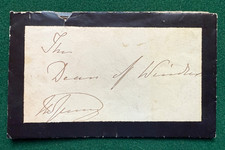 The
Dean of Windsor